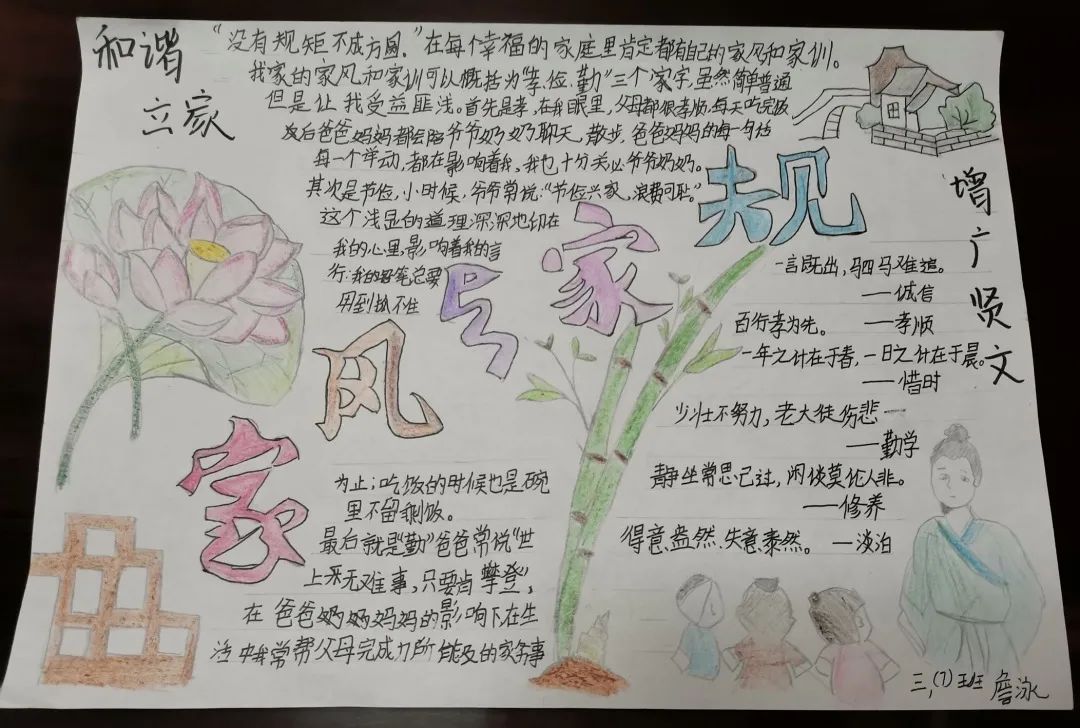 和谐
立家
“没有规矩不成方圆,”在每个幸福的家庭里肯定都有自己的家风和家训。
我家的家风和家训可以概括为“孝、俭、勤”三个字,虽然简单普通
但是让我受益匪浅。首先是孝,在我眼里,父母都很孝顺,每天吃完饭
后爸爸妈妈都会陪爷爷奶奶聊天,散步,爸爸妈妈的每一句话
每一个举动,都在影响着我,我也十分关心爷爷奶奶。
其次是节俭,小时候,爷爷常说:“节俭兴家,浪费可耻。”
这个浅显的道理深深地切在
我的心里,影响着我的言
行:我的铅笔总要
用到拿不住
为止;吃饭的时候也是碗
里不留剩饭。
最后就是“勤”爸爸常说“世
上采无难事,只要肯攀登”,
在爸爸奶奶妈妈的影响下在生
活中我常帮父母完成力所能及的家务事
家风与家规
增广贤文
一言既出,驷马难追。
——诚信
百行孝为先。 ——孝顺
一年之计在于春,一日之计在于晨。
——惜时
少壮不努力,老大徒伤悲
——勤学
静坐常思己过,闲谈莫论人非。
——修养
得意盎然,失意泰然。—淡泊
三,(7)班 詹泳